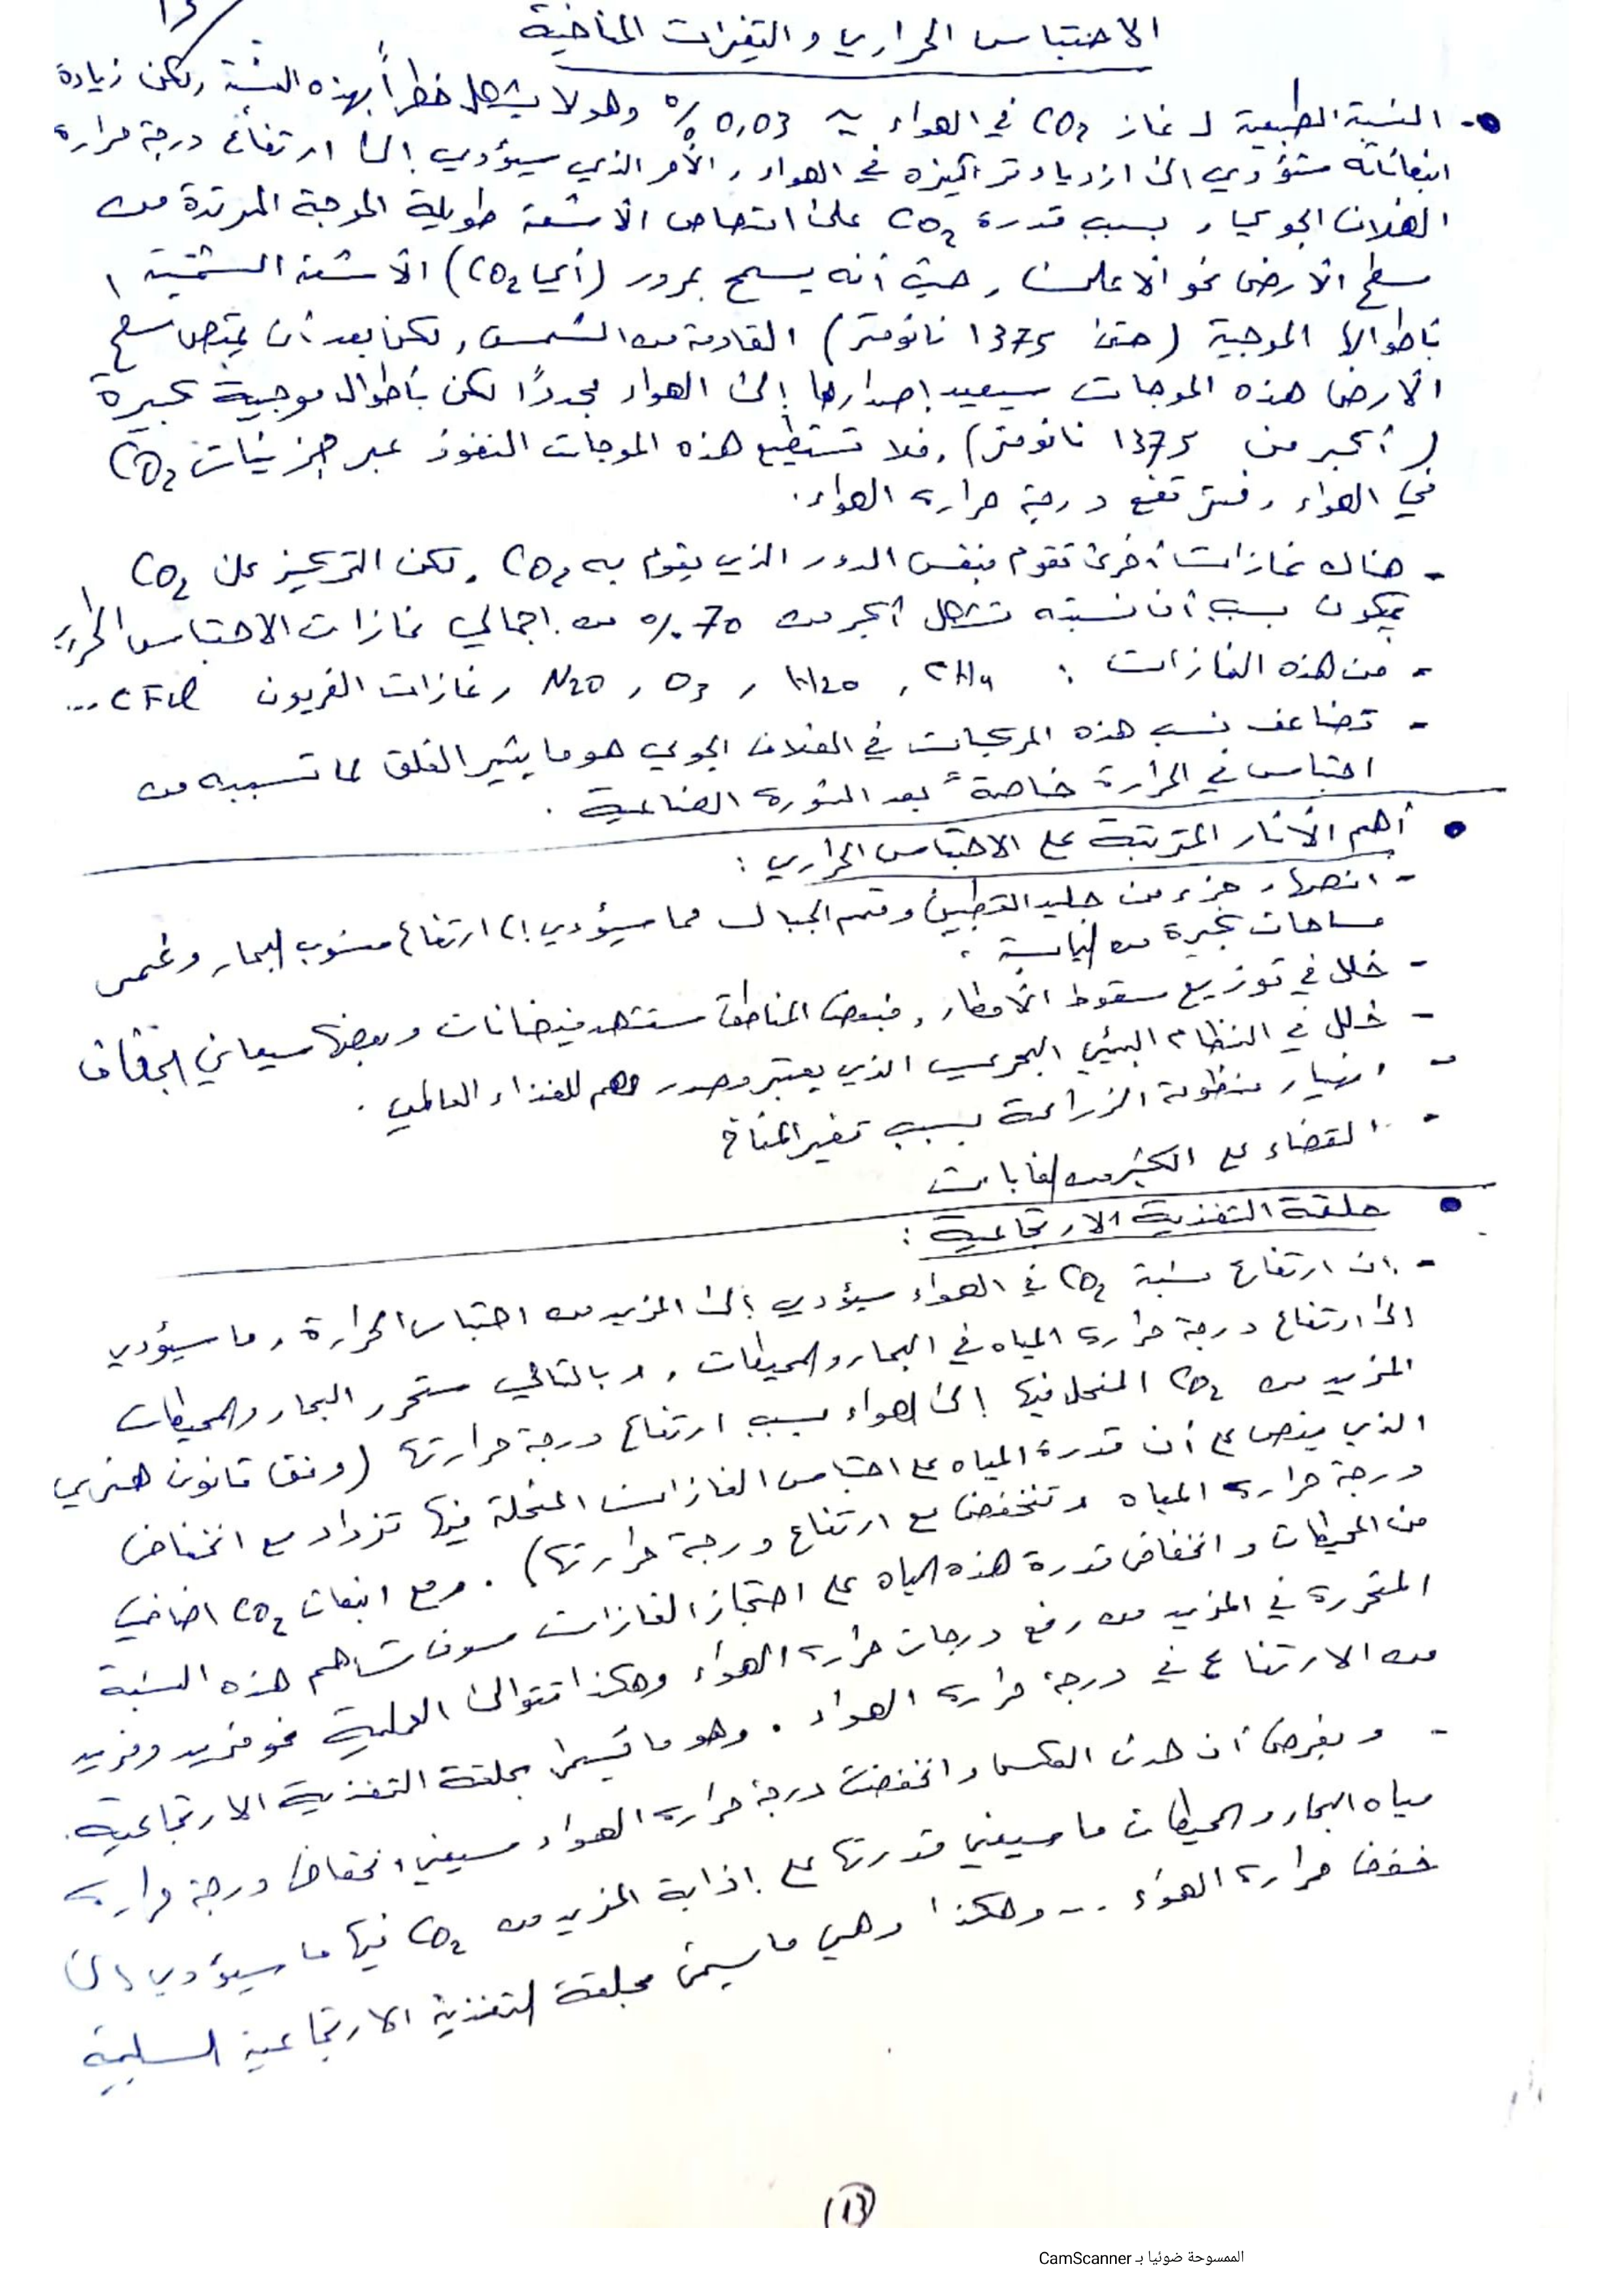 13
الاحتباس الحراري والتغيرات المناخية
- النسبة الطبيعية لـ غاز CO2 في الهواء ~ 0,03 % وهو لا يشكل خطراً بهذه النسبة, لكن زيادة
انبعاثاته ستؤدي الى ازدياد تركيزه في الهواء, الأمر الذي سيؤدي إلى ارتفاع درجة حرارة
الغلاف الجوي, بسبب قدرة CO2 على امتصاص الأشعة طويلة الموجة المرتدة من
سطح الأرض نحو الأعلى, حيث أنه يسمح بمرور (أي CO2) الأشعة الشمسية
بأطوالها الموجية (حتى 1375 نانومتر) القادمة من الشمس, لكن بعد أن يمتص سطح
الأرض هذه الموجات سيعيد إصدارها إلى الهواء مجدداً لكن بأطوال موجية كبيرة
(أكبر من 1375 نانومتر), فلا تستطيع هذه الموجات النفوذ عبر جزيئات CO2
في الهواء, فترتفع درجة حرارة الهواء.
- هناك غازات أخرى تقوم بنفس الدور الذي يقوم به CO2, لكن التركيز على CO2
يكون بسبب أن نسبته تشكل أكبر من 70 % من إجمالي غازات الاحتباس الحراري
- من هذه الغازات : CH4 , H2O , O3 , N2O , غازات الفريون CFCl ...
- تضاعف نسب هذه المركبات في الغلاف الجوي هو ما يثير القلق لما تسببه من
احتباس في الحرارة خاصةً بعد الثورة الصناعية .
• أهم الأثار المترتبة على الاحتباس الحراري :
- انصهار جزء من جليد القطبين وقمم الجبال مما سيؤدي إلى ارتفاع منسوب البحار وغمر
مساحات كبيرة من اليابسة .
- خلل في توزيع سقوط الأمطار, فبعض المناطق ستشهد فيضانات وبعضها سيعاني الجفاف
- خلل في النظام البيئي البحري الذي يعتبر مصدر مهم للغذاء العالمي .
- انهيار منظومة الزراعة بسبب تغير المناخ
- القضاء على الكثير من الغابات
• حلقة التغذية الارتجاعية :
- إن ارتفاع نسبة CO2 في الهواء سيؤدي إلى المزيد من احتباس الحرارة, ما سيؤدي
إلى ارتفاع درجة حرارة المياه في البحار والمحيطات, وبالتالي ستحرر البحار والمحيطات
المزيد من CO2 المنحل فيها إلى الهواء بسبب ارتفاع درجة حرارتها (وفق قانون هنري
الذي ينص على أن قدرة المياه على احتباس الغازات المنحلة فيها تزداد مع انخفاض
درجة حرارة المياه وتنخفض مع ارتفاع درجة حرارتها) . ومع انبعاث CO2 اضافي
من المحيطات وانخفاض قدرة هذه المياه على احتجاز الغازات سوف تساهم هذه النسبة
المتحررة في المزيد من رفع درجات حرارة الهواء وهكذا تتوالى العملية نحو مزيد ومزيد
من الارتفاع في درجة حرارة الهواء . وهو ما يسمى بحلقة التغذية الارتجاعية.
- وبفرض أن حدث العكس وانخفضت درجة حرارة الهواء سيعني انخفاض درجة حرارة
مياه البحار والمحيطات ما سيعني قدرتها على إذابة المزيد من CO2 فيها ما سيؤدي إلى
خفض حرارة الهواء ... وهكذا وهي ما يسمى بحلقة التغذية الارتجاعية السلبية
(13)
الممسوحة ضوئيا بـ CamScanner